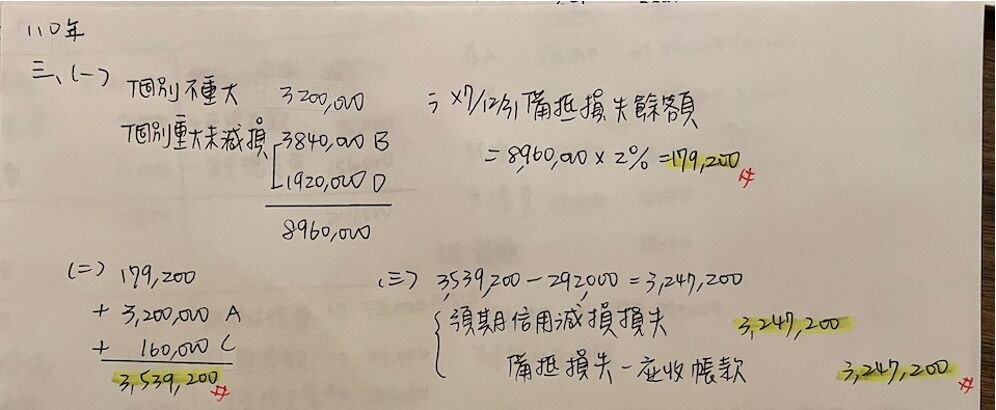 110年
三、(一) 個別不重大 3200,000
個別重大未減損 3840,000 B
1920,000 D
8960,000
∴ x7/12/31 備抵損失餘額
= 8,960,000 × 2% = 179,200 #
(二) 179,200
+ 3,200,000 A
+ 160,000 C
3,539,200 #
(三) 3,539,200 - 292,000 = 3,247,200
預期信用減損損失 3,247,200
備抵損失-應收帳款 3,247,200 #